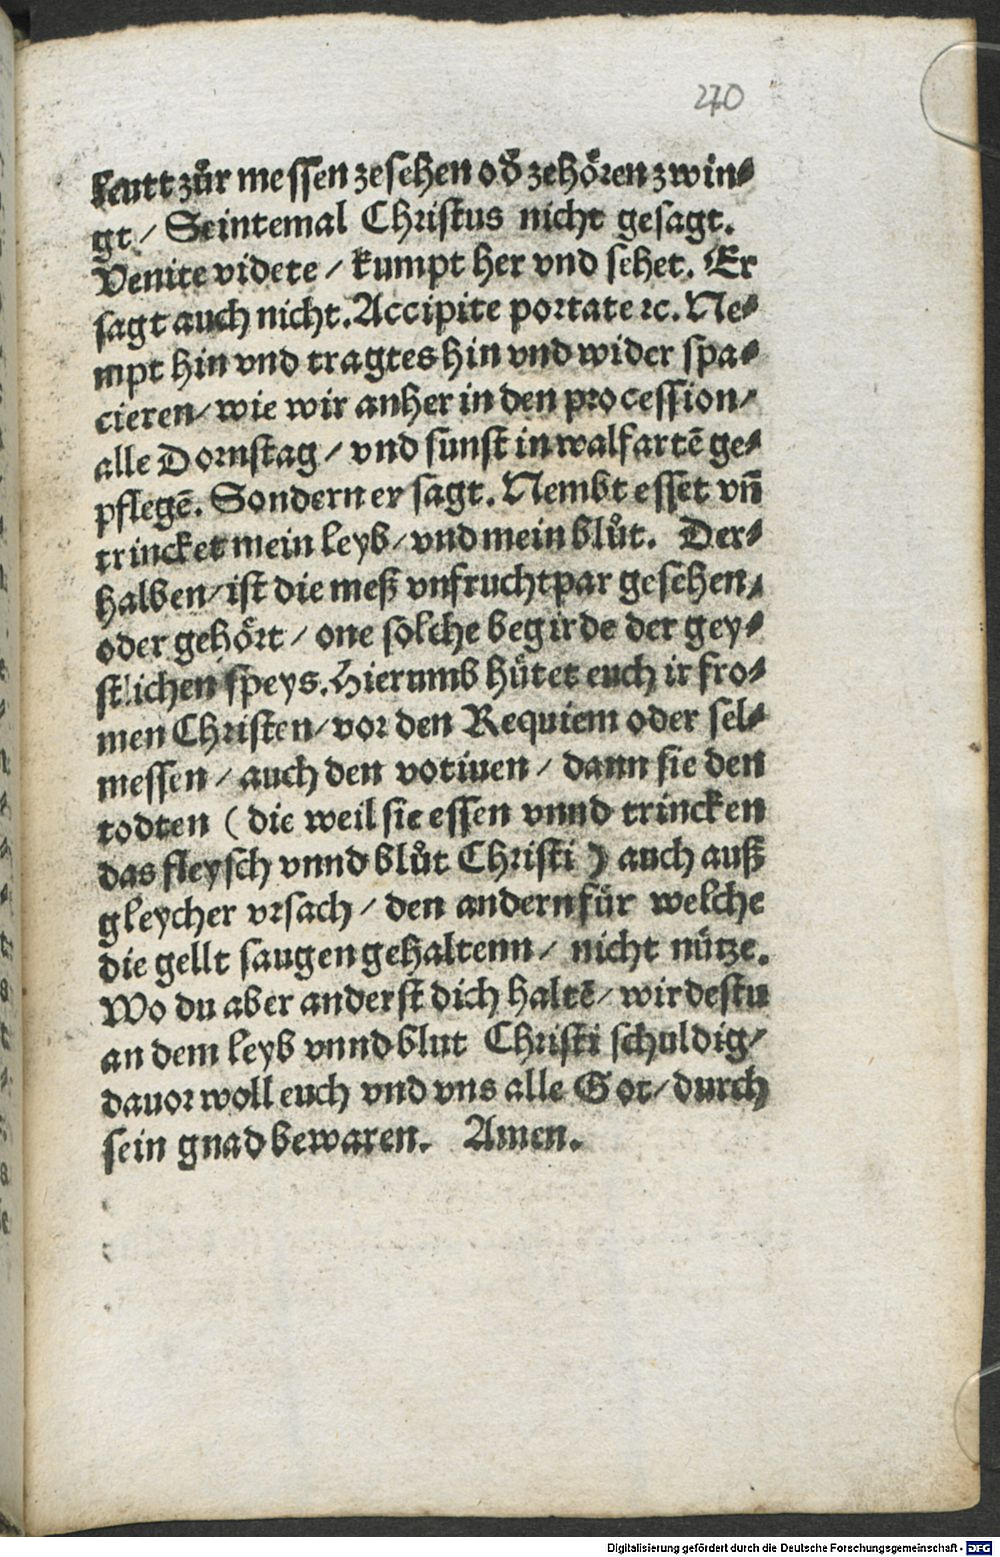 270
leutt zůr messen zesehen oď zehören zwin⸗
gt / Seintemal Christus nicht gesagt.
Venite videte / kumpt her vnd sehet. Er
sagt auch nicht. Accipite portate ꝛc. Ne⸗
mpt hin vnd tragtes hin vnd wider spa⸗
cieren / wie wir anher in den procession /
alle Dornstag / vnd sunst in walfartē ge⸗
pflegē. Sondern er sagt. Nembt esset vñ
trincket mein leyb / vnd mein blůt. Der⸗
halben / ist die meß vnfruchtpar gesehen /
oder gehört / one solche begirde der gey⸗
stlichen speys. Hierumb hütet euch ir fro⸗
men Christen / vor den Requiem oder sel⸗
messen / auch den votiuen / dann sie den
todten ( die weil sie essen vnnd trincken
das fleysch vnnd blůt Christi ) auch auß
gleycher vrsach / den andern für welche
die gellt saugen gehaltenn / nicht nütze.
Wo du aber anderst dich haltē / wirdestu
an dem leyb vnnd blut Christi schuldig /
dauor woll euch vnd vns alle Got / durch
sein gnad bewaren. Amen.
Digitalisierung gefördert durch die Deutsche Forschungsgemeinschaft - DFG